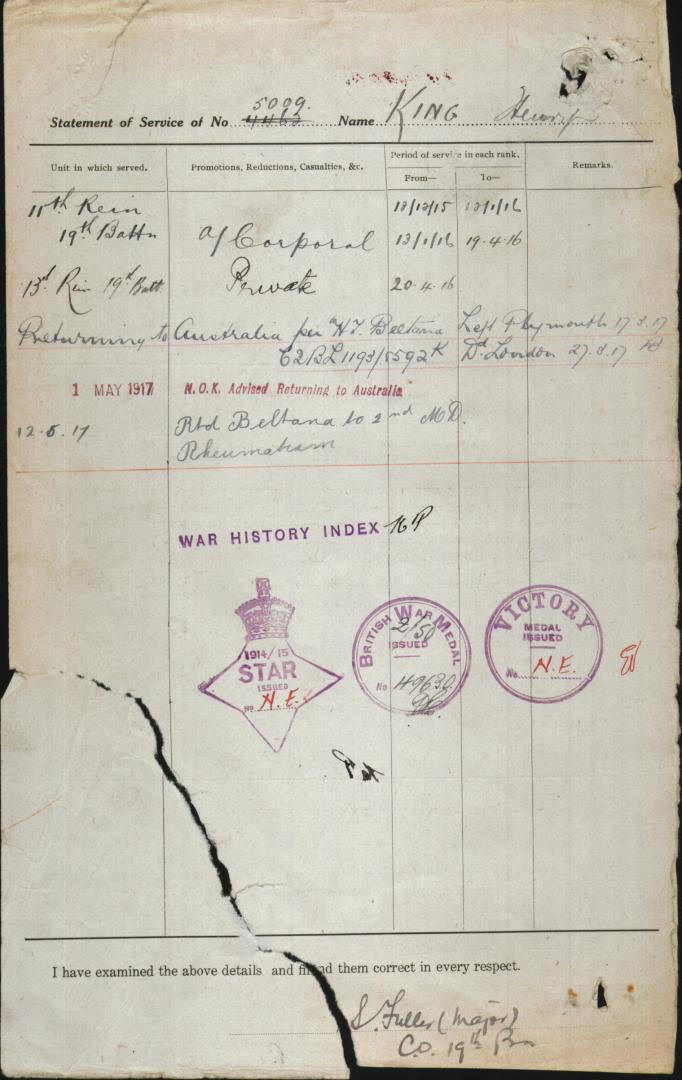 5009.
Statement of Service of No 4463 Name KING Henry
Unit in which served. Promotions, Reductions, Casualties, &c. Period of service in each rank. Remarks.
From— To—
11th Rein 13/12/15 12/1/16
19th Battn a/Corporal 13/1/16 19.4.16
13th Rein 19th Batt. Private 20.4.16
Returning to Australia per "H.T. Beltana Left Plymouth 17.3.17
C2BL1193/5592K Dd. London 27.3.17
1 MAY 1917 N.O.K. Advised Returning to Australia
12.5.17 Rtd Beltana to 2nd M.D.
Rheumatism
WAR HISTORY INDEX
1914/15
STAR
ISSUED
No. N.E.
BRITISH WAR MEDAL
2/50
ISSUED
No 49630
VICTORY
MEDAL
ISSUED
No. N.E.
I have examined the above details and find them correct in every respect.
S. Fuller (Major)
C.O. 19th Bn